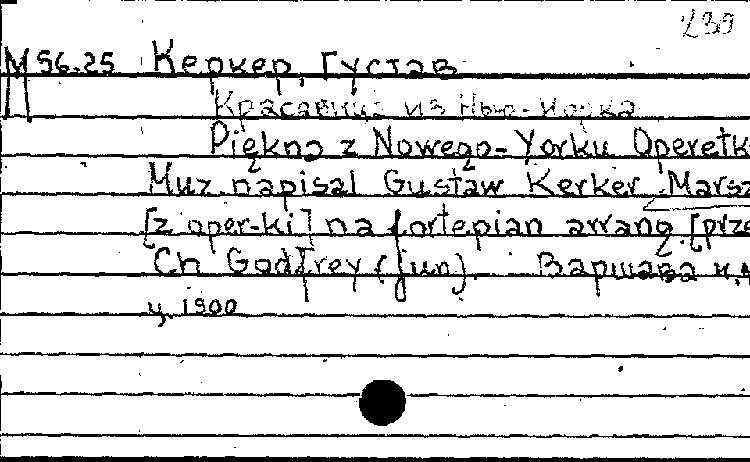 239
М 56.25 Керкер, Густав
Красавица из Нью-Йорка
Piękna z Nowego-Yorku Operetk
Muz. napisal Gustaw Kerker. Marsz
[z oper-ki] na fortepian arrang. [prze
Ch Godfrey (jun). Варшава
ц. 1900